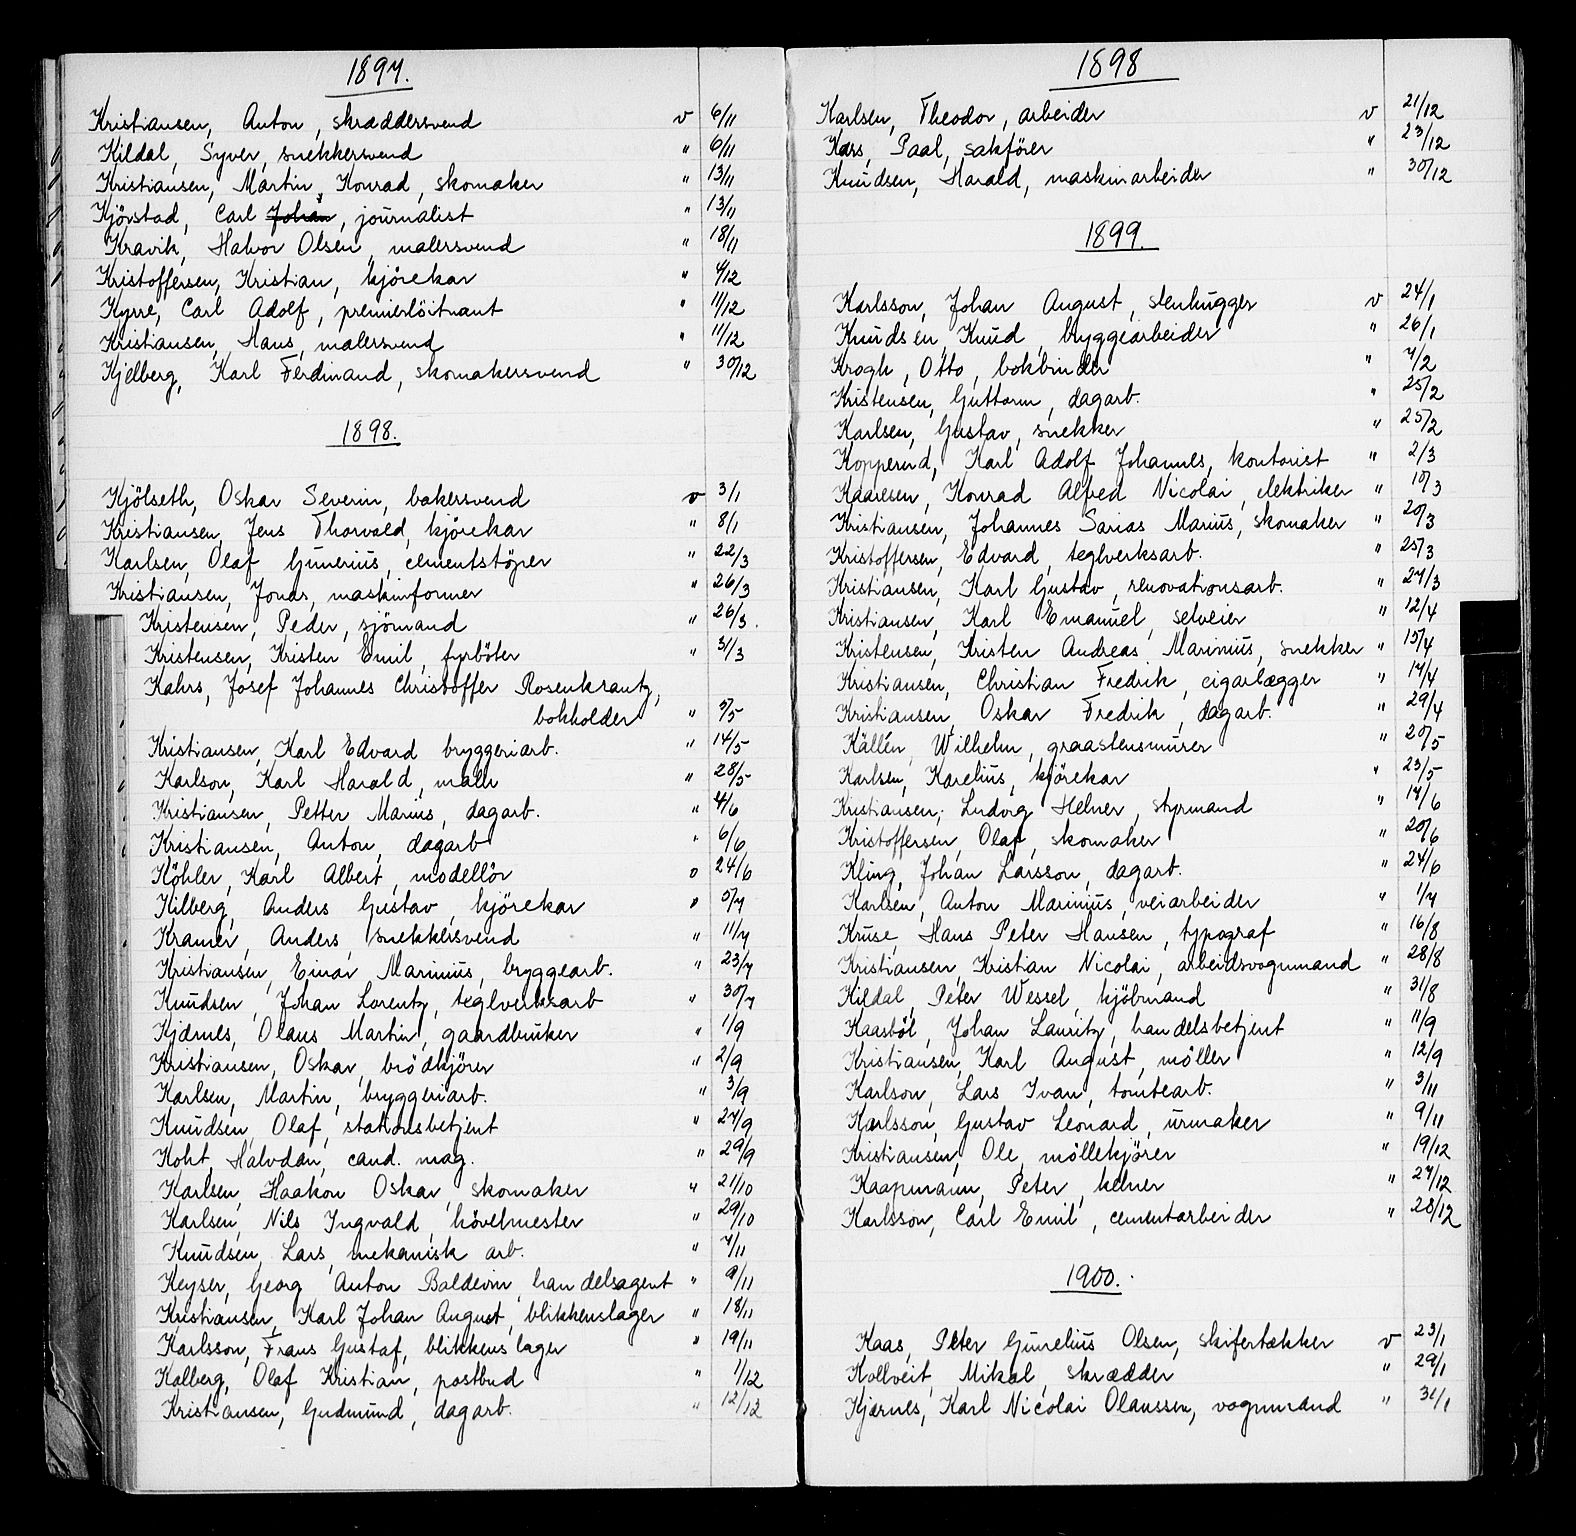 1897.
Kristiansen, Anton, skræddersvend v 6/11
Kildal, Syver, snekkersvend " 6/11
Kristiansen, Martin Konrad, skomaker " 13/11
Kjörstad, Carl Johan, journalist " 13/11
Kravik, Halvor Olsen, malersvend " 18/11
Kristoffersen, Kristian, kjörekar " 4/12
Kyrre, Carl Adolf, premierlöitnant " 11/12
Kristiansen, Hans, malersvend " 11/12
Kjelberg, Karl Ferdinand, skomakersvend " 30/12
1898.
Kjölseth, Oskar Severin, bakersvend v 3/1
Kristiansen, Jens Thorvald, kjörekar " 8/1
Karlsen, Olaf Gunerius, cementstöper " 22/3
Kristiansen, Jonas, maskinformer " 26/3
Kristensen, Peder, sjömand " 26/3.
Kristensen, Kristen Emil, fyrböter " 31/3
Kahrs, Josef Johannes Christoffer Rosenkrantz,
bokholder " 5/5
Kristiansen, Karl Edvard bryggeriarb. " 14/5
Karlson, Karl Harald, maler " 28/5
Kristiansen, Petter Marius, dagarb. " 4/6
Kristiansen, Anton, dagarb " 6/6
Köhler, Karl Albert, modellör " 24/6
Kilberg, Anders Gustav, kjörekar " 5/7
Kramer, Anders, snekkersvend " 11/7
Kristiansen, Einar Marinius, bryggearb. " 23/7
Knudsen, Johan Lorentz, teglverksarb " 30/7
Kjærnes, Olaus Martin, gaardbruker " 1/9
Kristiansen, Oskar, brödkjörer " 2/9
Karlsen, Martin, bryggeriarb. " 3/9
Knudsen, Olaf, stationsbetjent " 27/9
Koht, Halvdan, cand. mag. " 29/9
Karlsen, Haakon Oskar, skomaker " 21/10
Karlsen, Nils Ingvald, hövelmester " 29/10
Knudsen, Lars, mekanisk arb. " 7/11
Keyser, Georg Anton Baldevin, handelsagent " 9/11
Kristiansen, Karl Johan August, blikkenslager " 18/11
Karlsson, Frans Gustaf, blikkenslager " 19/11
Kalberg, Olaf Kristian, postbud " 1/12
Kristiansen, Gudmund, dagarb. " 12/12
1898
Karlsen, Theodor, arbeider v 21/12
Kars, Paal, sakförer " 23/12
Knudsen, Harald, maskinarbeider " 30/12
1899.
Karlsson, Johan August, stenhugger v 24/1
Knudsen, Knud, bryggearbeider " 26/1
Krogh, Otto, bokbinder " 7/2
Kristensen, Guttorm, dagarb. " 25/2
Karlsen, Gustav, snekker " 25/2
Kopperud, Karl Adolf Johannes, kontorist " 2/3
Kaaresen, Konrad Alfred Nicolai, elektriker " 10/3
Kristiansen, Johannes Sarias Marius, skomaker " 20/3
Kristoffersen, Edvard, teglverksarb. " 25/3
Kristiansen, Karl Gustav, renovationsarb. " 27/3
Kristiansen, Karl Emanuel, selveier " 12/4
Kristensen, Kristen Andreas Marinius, snekker " 15/4
Kristiansen, Christian Fredrik, cigarlægger " 17/4
Kristiansen, Oskar Fredrik, dagarb. " 29/4
Källén, Wilhelm, graastensmurer " 20/5
Karlsen, Karelius, kjörekar " 23/5
Kristiansen, Ludvig Helner, styrmand " 17/6
Kristoffersen, Olaf, skomaker " 20/6
Kling, Johan Larsson, dagarb. " 24/6
Karlsen, Anton Marinius, veiarbeider " 1/7
Kruse, Hans Peter Hansen, typograf " 16/8
Kristiansen, Kristian Nicolai, arbeidsvognmand " 28/8
Kildal, Peter Wessel, kjöbmand " 31/8
Kaasböl, Johan Lauritz, handelsbetjent " 11/9
Kristiansen, Karl August, möller " 12/9
Karlson, Lars Ivan, tomtearb. " 3/11
Karlsson, Gustav Leonard, urmaker " 9/11
Kristiansen, Ole, möllekjörer " 19/12
Kaapmann, Peter, kelner " 27/12
Karlsson, Carl Emil, cementarbeider " 28/12
1900.
Kaas, Peter Gunelius Olsen, skifertækker v 23/1
Kollveit, Mikal, skrædder " 29/1
Kjærnes, Karl Nicolai Olaussen, vognmand " 31/1